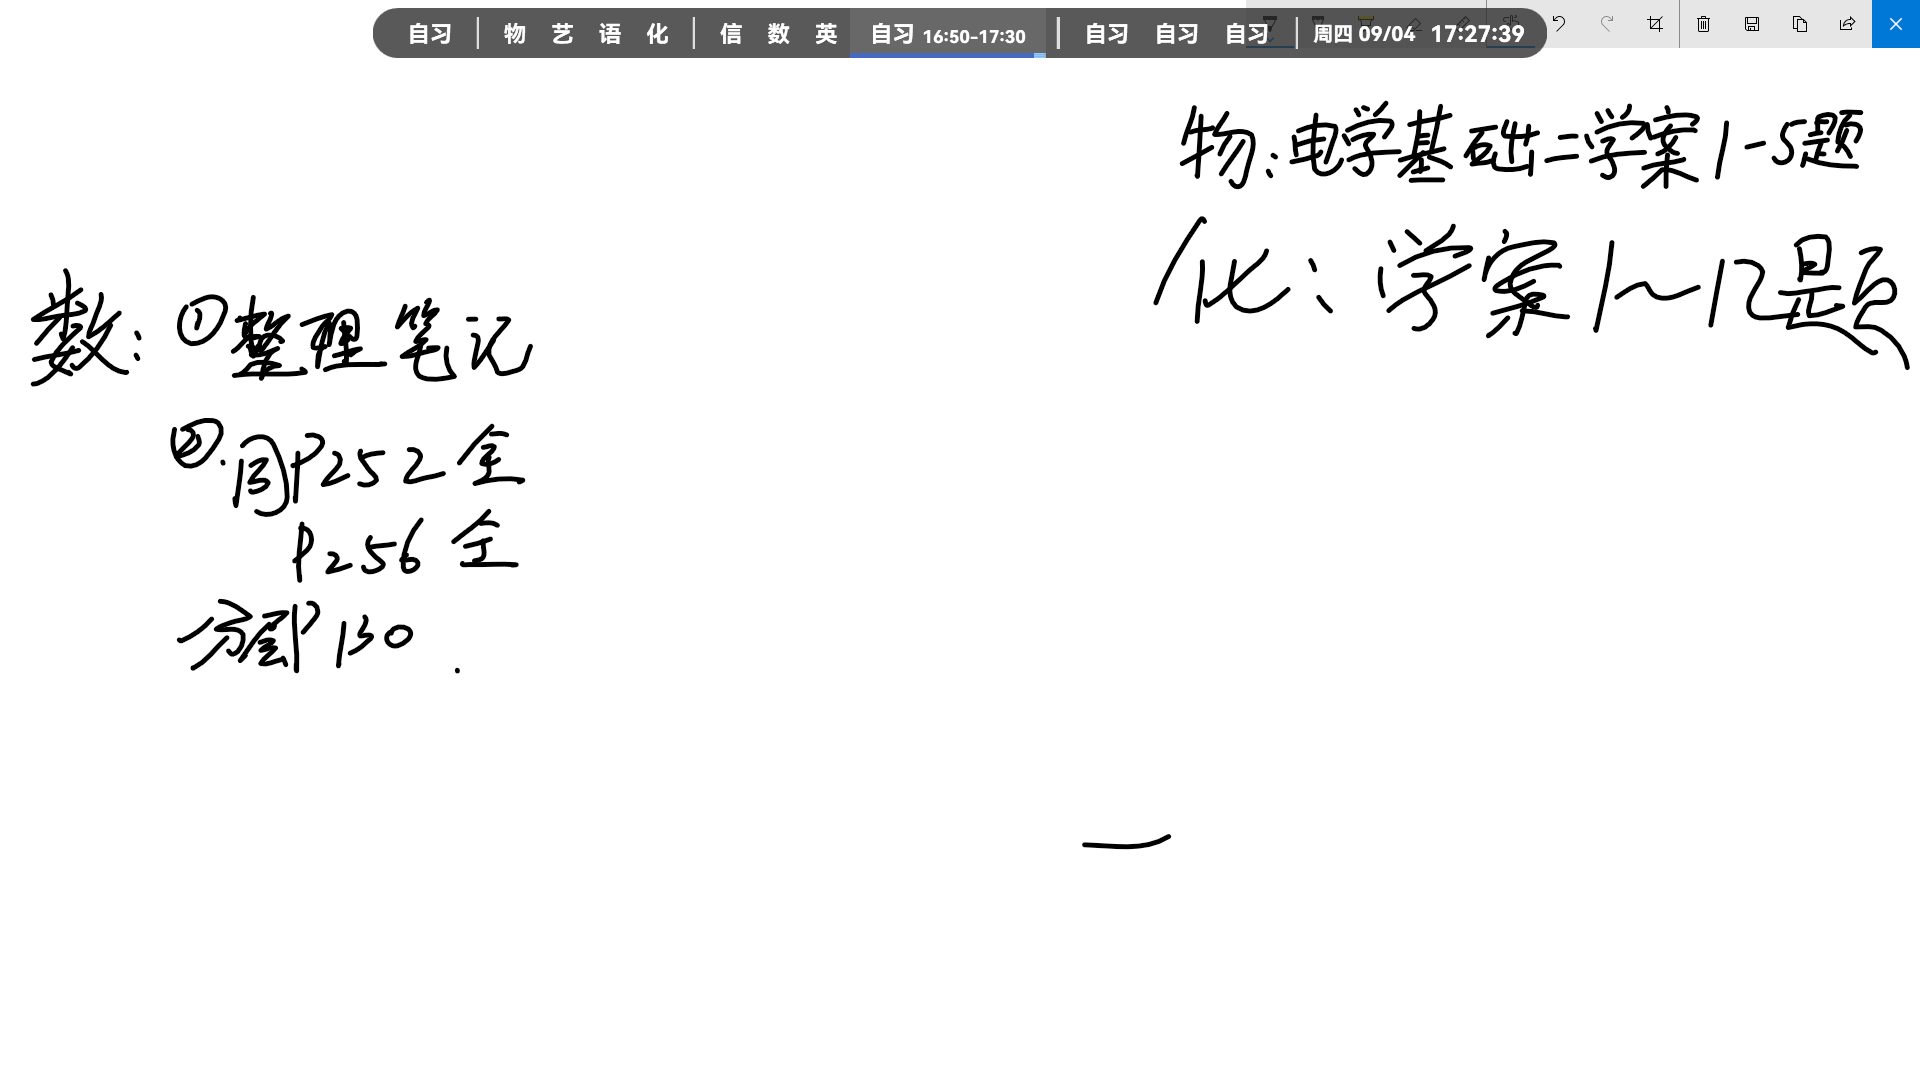 自习 | 物 艺 语 化 | 信 数 英 自习 16:50-17:30 | 自习 自习 自习 | 周四 09/04 17:27:39
物:电学基础二学案1-5题
化:学案1~12题
数:①整理笔记
②.同P252全
P256全
分层P130.